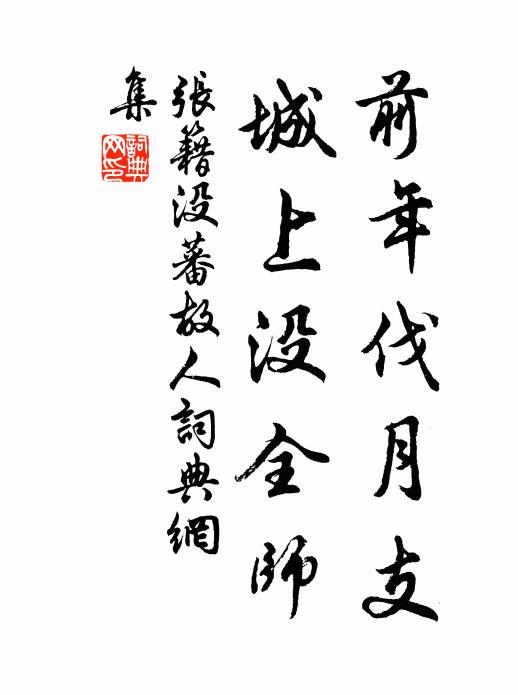 前年伐月支
城上没全師
張籍没蕃故人詞典網
集
詞典
网印